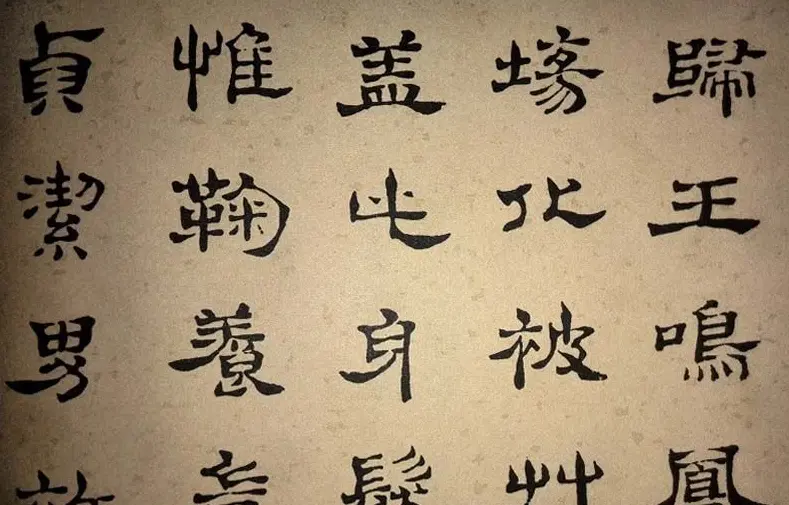 歸王鳴鳳
場化被艸
盖此身髮
惟鞠養豈
貞潔男效